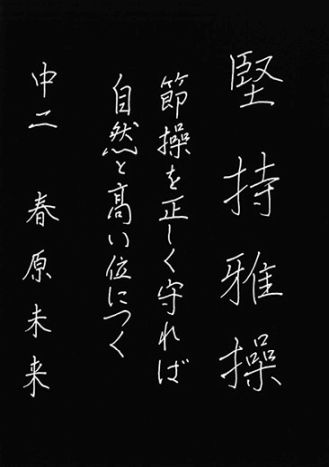 堅持雅操
節操を正しく守れば
自然と高い位につく
中二 春原未来